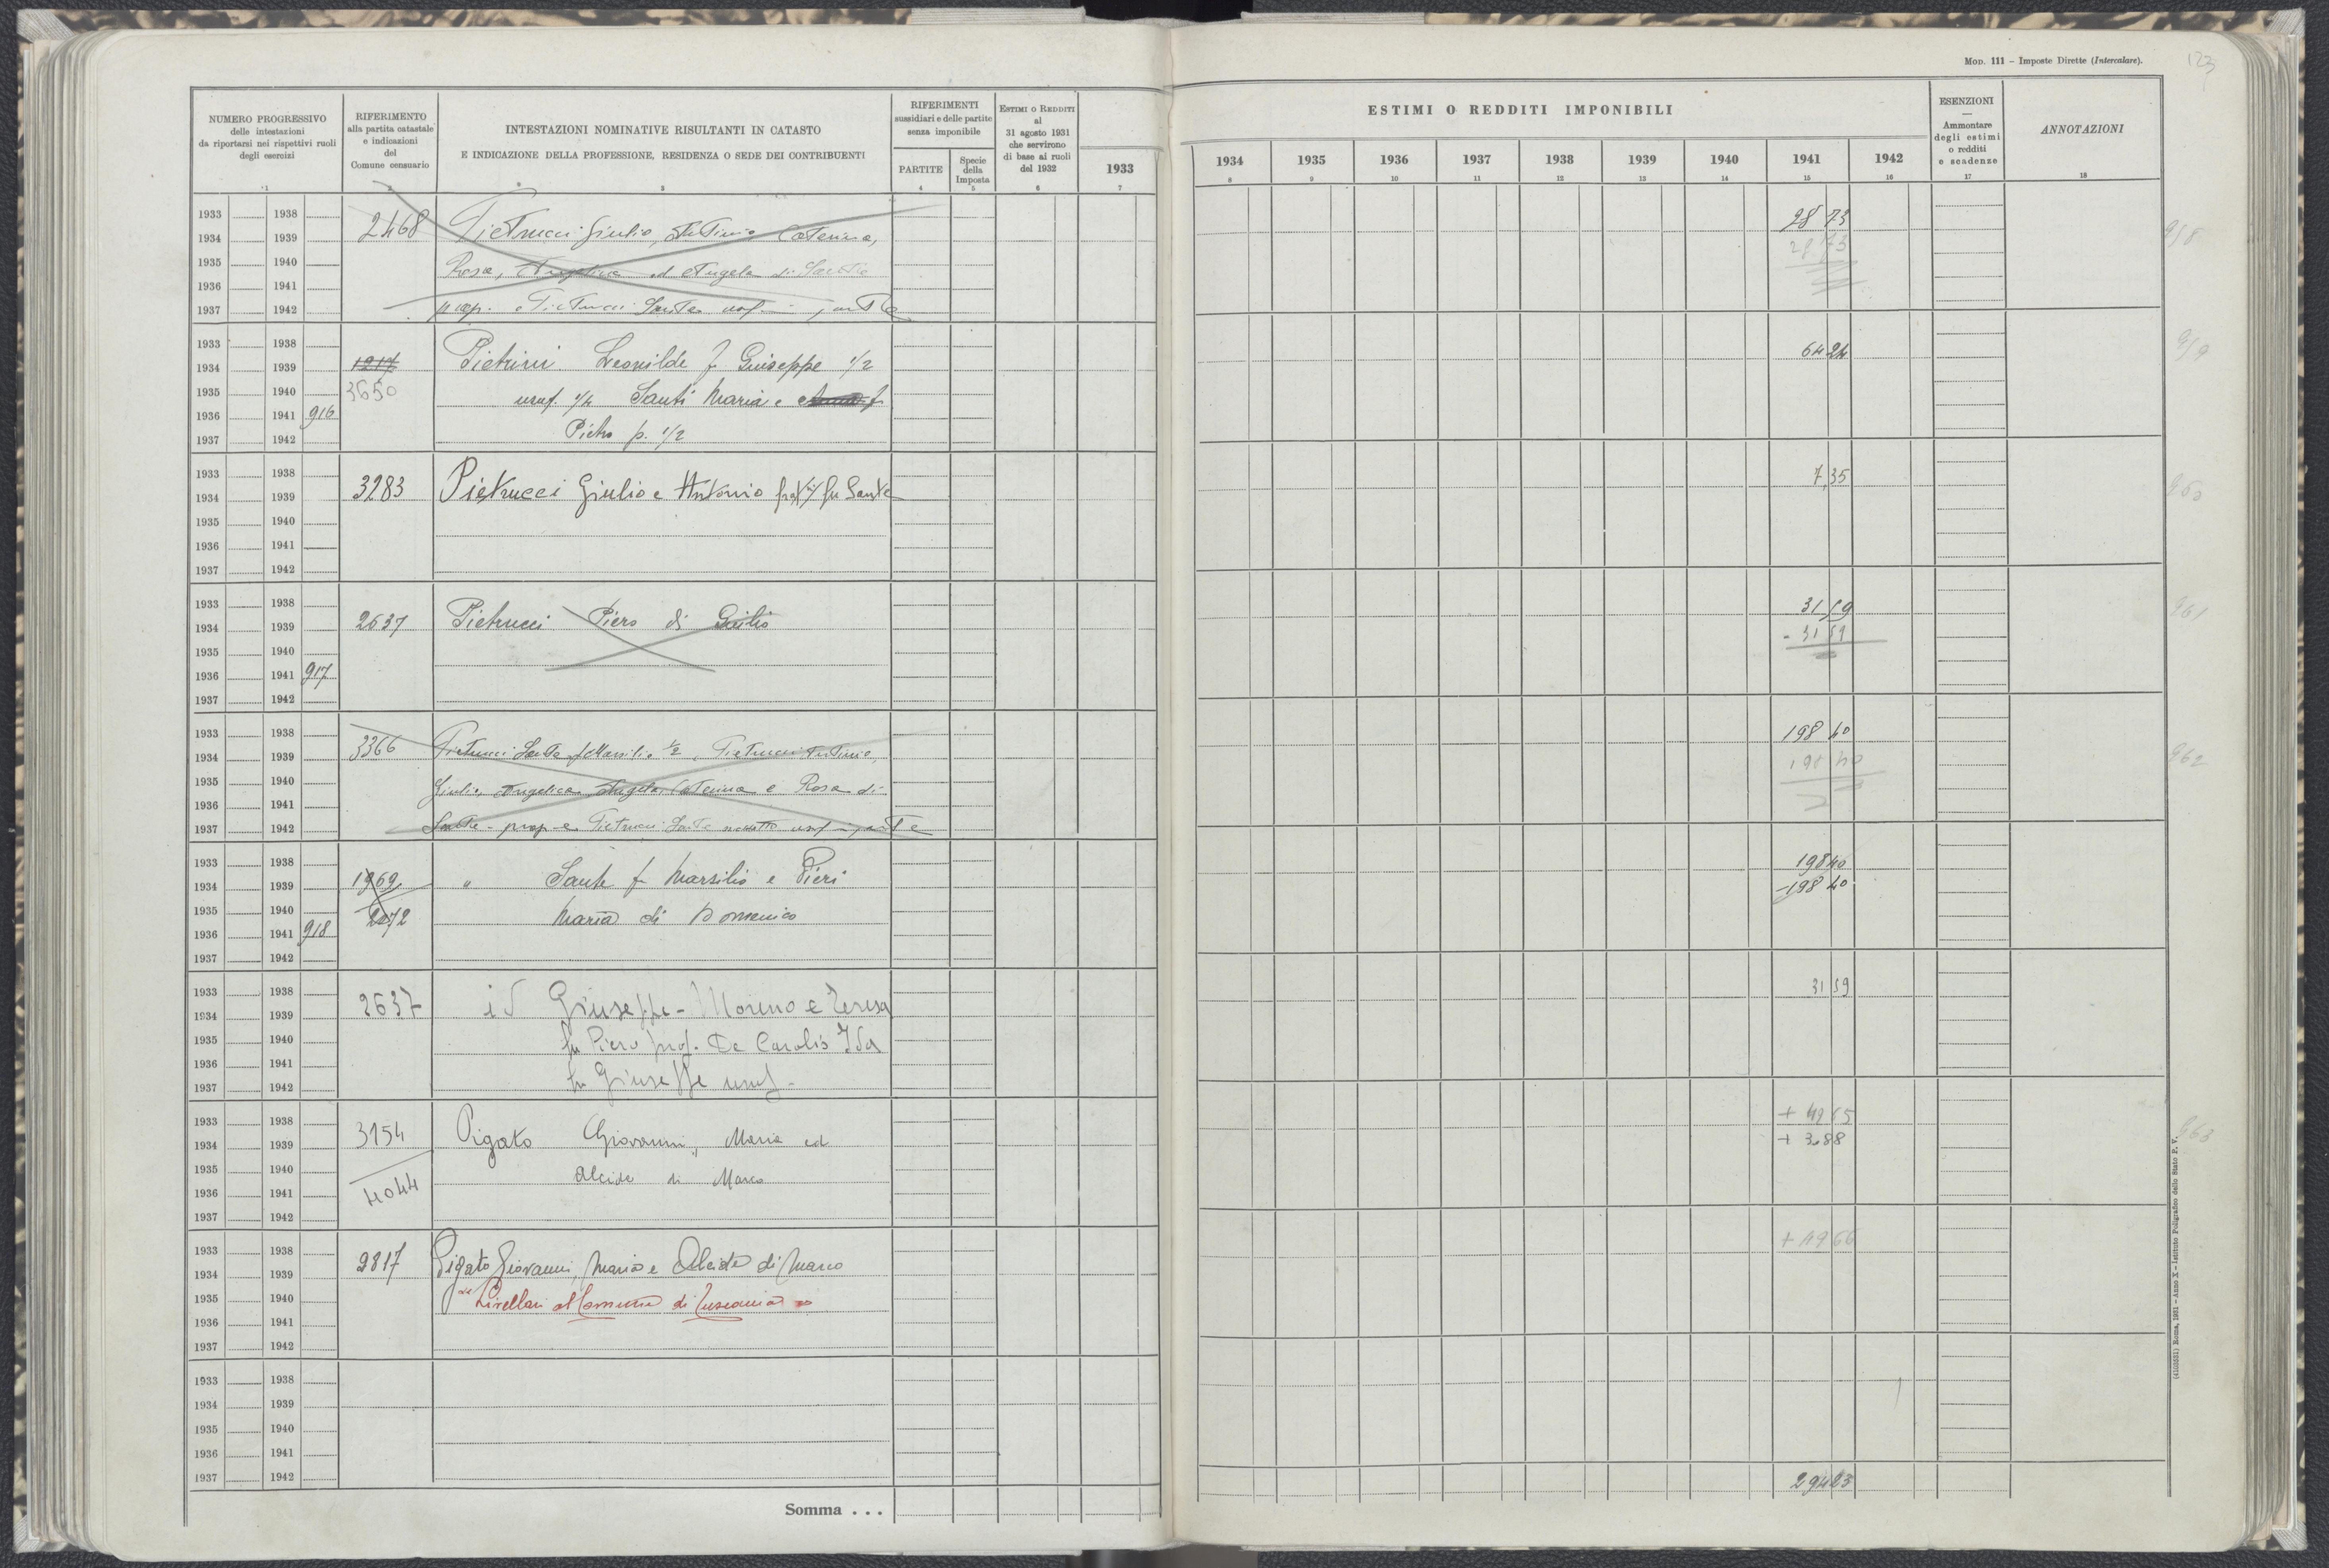 MOD. 111 – Imposte Dirette (Intercalare).
123
NUMERO PROGRESSIVO
delle intestazioni
da riportarsi nei rispettivi ruoli
degli esercizi
1
RIFERIMENTO
alla partita catastale
e indicazioni
del
Comune censuario
2
INTESTAZIONI NOMINATIVE RISULTANTI IN CATASTO
E INDICAZIONE DELLA PROFESSIONE, RESIDENZA O SEDE DEI CONTRIBUENTI
3
RIFERIMENTI
sussidiari e delle partite
senza imponibile
PARTITE
4
Specie
della
Imposta
5
ESTIMI O REDDITI
al
31 agosto 1931
che servirono
di base ai ruoli
del 1932
6
1933
7
ESTIMI O REDDITI IMPONIBILI
1934 1935 1936 1937 1938 1939 1940 1941 1942
8 9 10 11 12 13 14 15 16
ESENZIONI
—
Ammontare
degli estimi
o redditi
e scadenze
17
ANNOTAZIONI
18
1933 1938
1934 1939 2468 Pietrucci Giulio, Caterina, 28 73
1935 1940 Rosa, Angelica ed Angela di Sante 28 73
1936 1941
1937 1942 prop. e Pietrucci Sante usuf. parte
958
1933 1938
1934 1939 1217 Pietrini Leonilde f Giuseppe 1/2 64 24
1935 1940 3650 usuf. 1/4 Santi Maria e f
1936 1941 916
1937 1942 Pietro p. 1/2
959
1933 1938
1934 1939 3283 Pietrucci Giulio e Antonio frat. fu Sante 7,35
1935 1940
1936 1941
1937 1942
960
1933 1938
1934 1939 2637 Pietrucci Piero di Giulio 31 59
1935 1940 - 31 59
1936 1941 917
1937 1942
961
1933 1938
1934 1939 3366 Pietrucci Sante f Marsilio 1/2, Pietrucci 198 40
1935 1940 Giulio, Angelica, Angela, Caterina e Rosa di 198 40
1936 1941
1937 1942 Sante prop e Pietrucci Sante usuf parte
962
1933 1938
1934 1939 1969 " Sante f Marsilio e Pieri 198 40
1935 1940 2072 Maria di Domenico -198 40
1936 1941 918
1937 1942
1933 1938
1934 1939 2637 id Giuseppe - Moreno e Teresa 31 59
1935 1940 fu Piero prop. De Carolis Ida
1936 1941
1937 1942 fu Giuseppe usuf.
1933 1938
1934 1939 3154 Pigato Giovanni, Maria ed + 49 65
1935 1940 Alcide di Marco + 3.88
1936 1941 4044
1937 1942
963
1933 1938
1934 1939 2817 Pigato Giovanni, Maria e Alcide di Marco + 49 66
1935 1940 Livellari al Comune di Tuscania
1936 1941
1937 1942
1933 1938
1934 1939
1935 1940
1936 1941
1937 1942
Somma . . . 294 23
(4103551) Roma, 1931 – Anno X – Istituto Poligrafico dello Stato P. V.